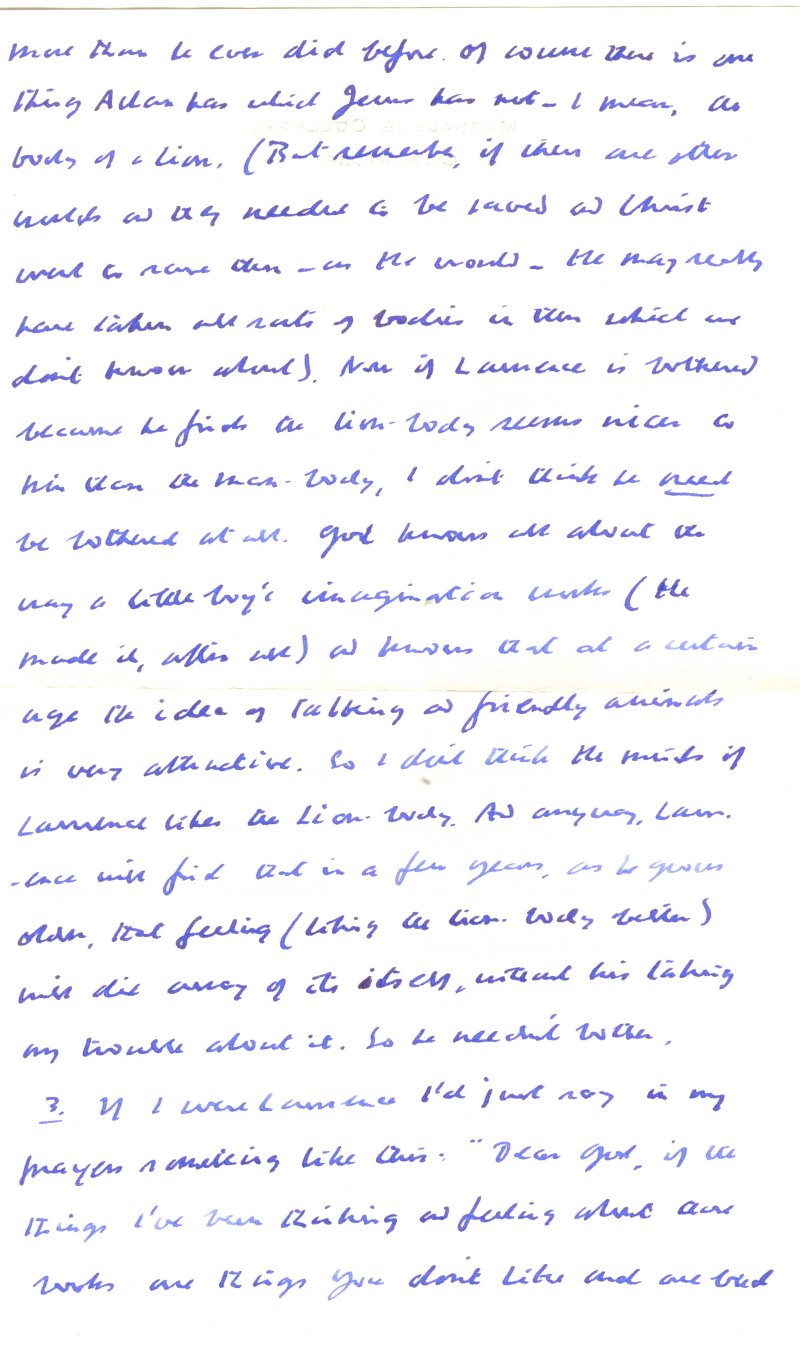 more than he ever did before. Of course there is one
thing Aslan has which Jesus has not – I mean, the
body of a lion. (But remember, if there are other
worlds and they needed to be saved and Christ
went to save them – as He would – He may really
have taken all sorts of bodies in them which we
don't know about). Now if Laurence is bothered
because he finds the lion-body seems nicer to
him than the man-body, I don't think he need
be bothered at all. God knows all about the
way a little boy's imagination works (He
made it, after all) and knows that at a certain
age the idea of talking and friendly animals
is very attractive. So I don't think He minds if
Laurence likes the Lion-body. And anyway, Laur-
-ence will find that in a few years, as he grows
older, that feeling (liking the lion-body better)
will die away of its itself, without his taking
any trouble about it. So he needn't bother.
3. If I were Laurence I'd just say in my
prayers something like this: "Dear God, if the
things I've been thinking and feeling about those
books are things You don't like and are bad